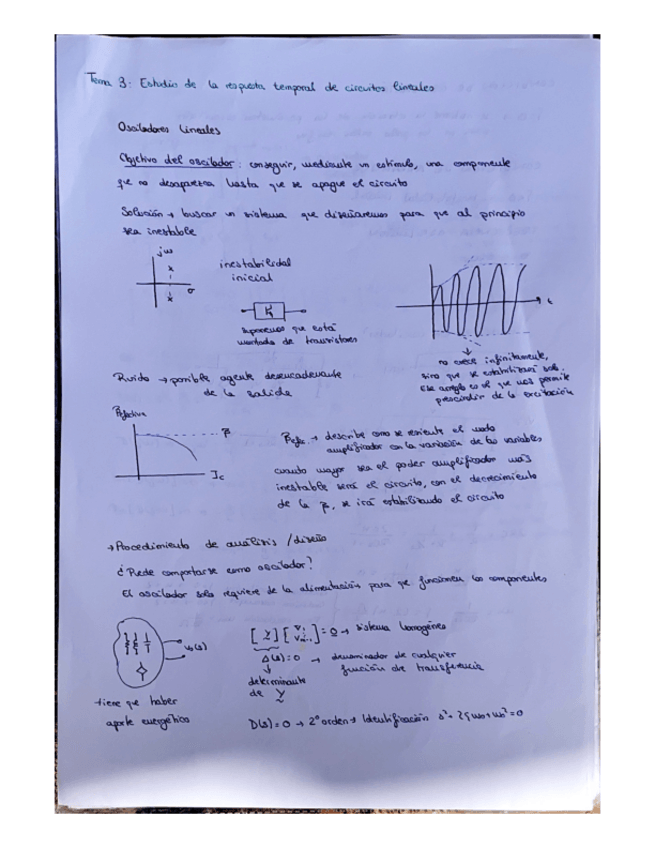 Tema 3: Estudio de la respuesta temporal de circuitos lineales
Osciladores lineales
Objetivo del oscilador: conseguir, mediante un estímulo, una componente
que no desaparezca hasta que se apague el circuito
Solución → buscar un sistema que diseñaremos para que al principio
sea inestable
jω
σ
inestabilidad
inicial
K
suponemos que está
montado de transistores
t
no crece infinitamente,
sino que se estabilizará solo.
es el que nos permite
prescindir de la excitación
Ruido → posible agente desencadenante
de la salida
βefectiva
β
Ic
βefec. → describe como se resiente el modo
amplificador con la variación de las variables
cuanto mayor sea el poder amplificador más
inestable será el circuito, con el decrecimiento
de la β, se irá estabilizando el circuito
→ Procedimiento de análisis / diseño
¿Puede comportarse como oscilador?
El oscilador solo requiere de la alimentación para que funcionen los componentes
Vo(s)
tiene que haber
aporte energético
[Y] [ ] = 0 → sistema homogéneo
Δ(s) = 0 → denominador de cualquier
función de transferencia
determinante
de Y
D(s) = 0 → 2º orden → Identificación